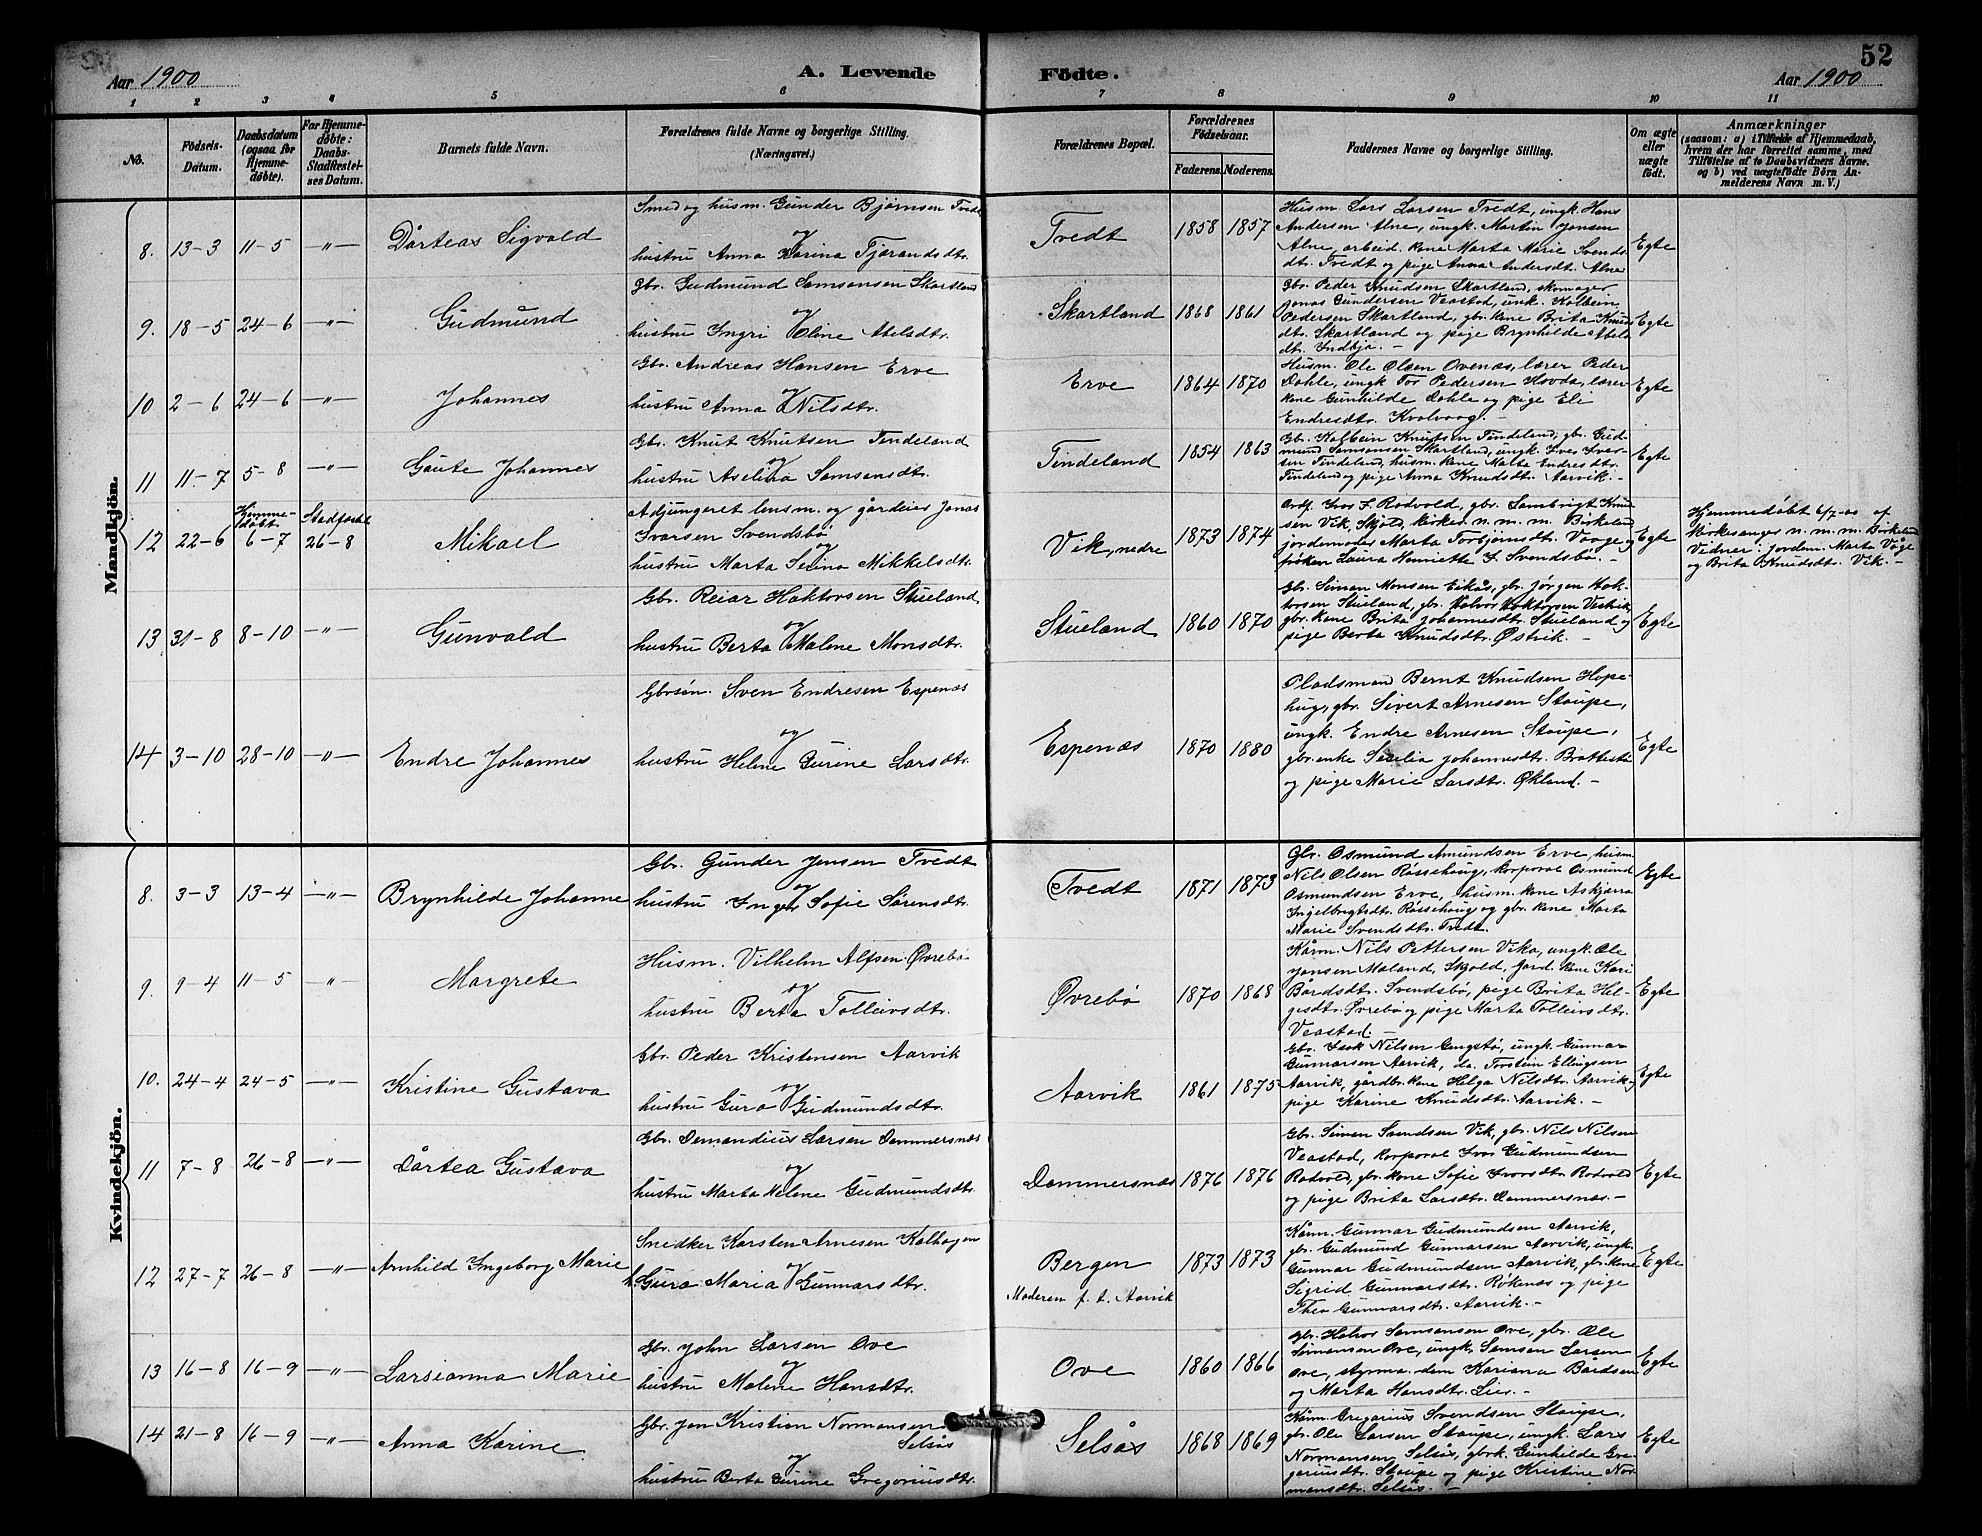 52
Aar 1900
A. Levende
Födte.
Aar 1900
1 2 3 4 5 6 7 8 9 10 11
No.
Födsels-Datum.
Daabsdatum (ogsaa for Hjemme-döbte).
For Hjemme-döbte: Daabs-Stadfæstel-ses Datum.
Barnets fulde Navn.
Forældrenes fulde Navne og borgerlige Stilling. (Næringsvei.)
Forældrenes Bopæl.
Forældrenes Födselsaar.
Faderens. Moderens.
Faddernes Navne og borgerlige Stilling.
Om ægte eller uægte födt.
Anmærkninger
(saasom: a) i Tilfælde af Hjemmedaab,
hvem der har forrettet samme, med
Tilföielse af to Daabsvidners Navne.
og b) ved uægtefödte Börn An-
melderens Navn m. V.)
Mandkjön.
8. 13-3 11-5 -"- Dårteas Sigvald
Smed og husm. Gunder Bjørnsen Tvedt
og
hustru Anna Karina Tjørandsdtr.
Tvedt 1858 1857
Husm. Lars Larsen Tvedt, ungk. Hans
Andersen Alne, ungk. Martin Jensen
Alne, arbeid. kone Marta Marie Svends-
dtr. Tvedt og pige Anna Andersdt. Alne
Egte
9. 18-5 24-6 -"- Gudmund
Gbr. Gudmund Samsonsen Skartland
og
hustru Ingri Oline Abelsdtr.
Skartland 1868 1861
Gbr. Peder Knudsen Skartland, skomager
Jonas Gundersen Veastad, unk. Kolbein
Pedersen Skartland, gbr. kone Brita Knuds
dtr. Skartland og pige Brynhilde Abels
dtr. Indbjo. -
Egte
10 2-6 24-6 -"- Johannes
Gbr. Andreas Hansen Erve
og
hustru Anna Nilsdtr.
Erve 1864 1870
Husm. Ole Olsen Ovenæs, lærer Peder
Dahle, ungk Tor Pedersen Hovda, lærer-
kone Gunhilde Dahle og pige Eli
Endresdtr. Kvalvaag. -
Egte
11 11-7 5-8 -"- Gaute Johannes
Gbr. Knut Knutsen Tindeland
og
hustru Aselina Samsonsdtr.
Tindeland 1854 1863
Gbr. Kolbein Knutsen Tindeland, gbr. Gud-
mund Samsonsen Skartland, ungk. Ives Ivar-
sen Tindeland, husm. kone Malta Endresdtr.
Tindeland og pige Anna Knudsdtr. Aarvik. -
Egte
12 22-6 Hjemme-døbt 6-7 Stadfæstet 26-8 Mikael
Adjungeret lensm. og gårdeier Jonas
Ivarsen Svendsbø
og
hustru Marta Selina Mikkelsdtr.
Vik, nedre 1873 1874
Ordf. Ivar S. Rodvold, gbr. Lambrigt Knu-
sen Vik, Skjold, kirkes. n. m. m. Birkeland
jordemoder Marta Torbjørnsdtr. Vaage og
frøken Laura Henriette S. Svendsbø. -
Egte
Hjemmedøbt 6/7-00 af
Kirkesanger n. m. m. Birkeland
Vidner: jordem. Marta Våge
og Brita Knudsdtr. Vik. -
13 31-8 8-10 -"- Gunvald
Gbr. Reiar Haktorsen Stueland
og
hustru Berta Malene Monsdtr.
Stueland 1860 1870
Gbr. Simon Monsen Eikås, gbr. Jørgen Hak-
torsen Stueland, gbr. Halvor Haktorsen Vestvik,
gbr. kone Brita Johannesdtr. Stueland og
pige Berta Knudsdtr. Østvik. -
Egte
14 3-10 28-10 -"- Endre Johannes
Gbrsøn. Sven Endresen Espenæs
og
hustru Helene Gurine Larsdtr.
Espenæs 1870 1880
Pladsmand Bernt Knudsen Hope-
hug, gbr. Sivert Arnesen Staupe,
ungk. Endre Arnesen Staupe,
gbr. enke Sesilia Johannesdtr. Brattestø
og pige Marie Larsdtr. Økland. -
Egte
Kvindekjön.
8. 3-3 13-4 -"- Brynhilde Johanne
Gbr. Gunder Jensen Tvedt
og
hustru Inger Sofie Sørensdtr.
Tvedt 1871 1873
Gbr. Osmund Amundsen Erve, husm.
Nils Olsen Røssehaug, korporal Osmund
Osmundsen Erve, husm. kone Askjerra
Ingelbrigtsdtr. Røssehaug og gbr. kone Marta
Marie Svendsdtr. Tvedt.
Egte
9. 9-4 11-5 -"- Margrete
Husm. Vilhelm Alfsen Øvrebø
og
hustru Berta Tolleivsdtr.
Øvrebø 1870 1868
Kårm. Nils Pettersen Vika, ungk. Ole
Jensen Maland, Skjold, jord. kone Kari
Bårdsdtr. Svendsbø, pige Brita Hel-
gesdtr. Øvrebø og pige Marta Tolleivsdtr.
Veastad. -
Egte
10. 24-4 24-5 -"- Kristine Gustava
Gbr. Peder Kristensen Aarvik
og
hustru Guro Gudmundsdtr.
Aarvik 1861 1875
Gbr. Isak Nilsen Gangstø, ungk. Gunnar
Gunnarsen Aarvik, do. Torstein Ellingsen
Aarvik, gårdbr. kone Helga Nilsdtr. Aarvik og
pige Karine Knudsdtr. Aarvik. -
Egte
11 7-8 26-8 -"- Dårtea Gustava
Gbr. Demandius Larsen Dommersnæs
og
hustru Marta Helene Gudmundsdtr.
Dommersnæs 1876 1876
Gbr. Simon Svendsen Vik, gbr. Nils Nilsen
Veastad, korporal Ivar Gudmundsen
Rodvold, gbr. kone Sofie Ivarsdtr. Rodvold
og pige Brita Larsdtr. Dommersnæs. -
Egte
12 27-7 26-8 -"- Arnhild Ingeborg Marie
Snedker Karsten Arnesen Kalhagen
og
h. Guro Maria Gunnarsdtr.
Bergen
Moderen p. t. Aarvik
1873 1873
Kårm. Gunnar Gudmundsen Aarvik,
gbr. Gudmund Gunnarsen Aarvik, ungk.
Gunnar Gudmundsen Aarvik, gbr. kone
Sigrid Gunnarsdtr. Røkenæs og pige
Thea Gunnarsdtr. Aarvik. -
Egte
13 16-8 16-9 -"- Larsianna Marie
Gbr. John Larsen Ove
og
hustru Malene Hansdtr.
Ove 1860 1866
Gbr. Halvor Samsonsen Ove, gbr. Ole
Simonsen Ove, ungk. Samson Larsen
Ove, styrma. dem Kariana Bårdsen
og Marta Hansdtr. Lier. -
Egte
14 21-8 16-9 -"- Anna Karine
Gbr. Jon Kristian Normansen
Selsås
og
hustru Berta Gurine Gregoriusdtr.
Selsås 1868 1869
Kårm. Gregorius Svendsen Staupe,
gbr. Ole Larsen Staupe, ungk. Lars
Normansen Selsås, gbrk. Gunhilde Gre-
goriusdtr. Staupe og pige Kristine Nor-
mansdtr. Selsås. -
Egte